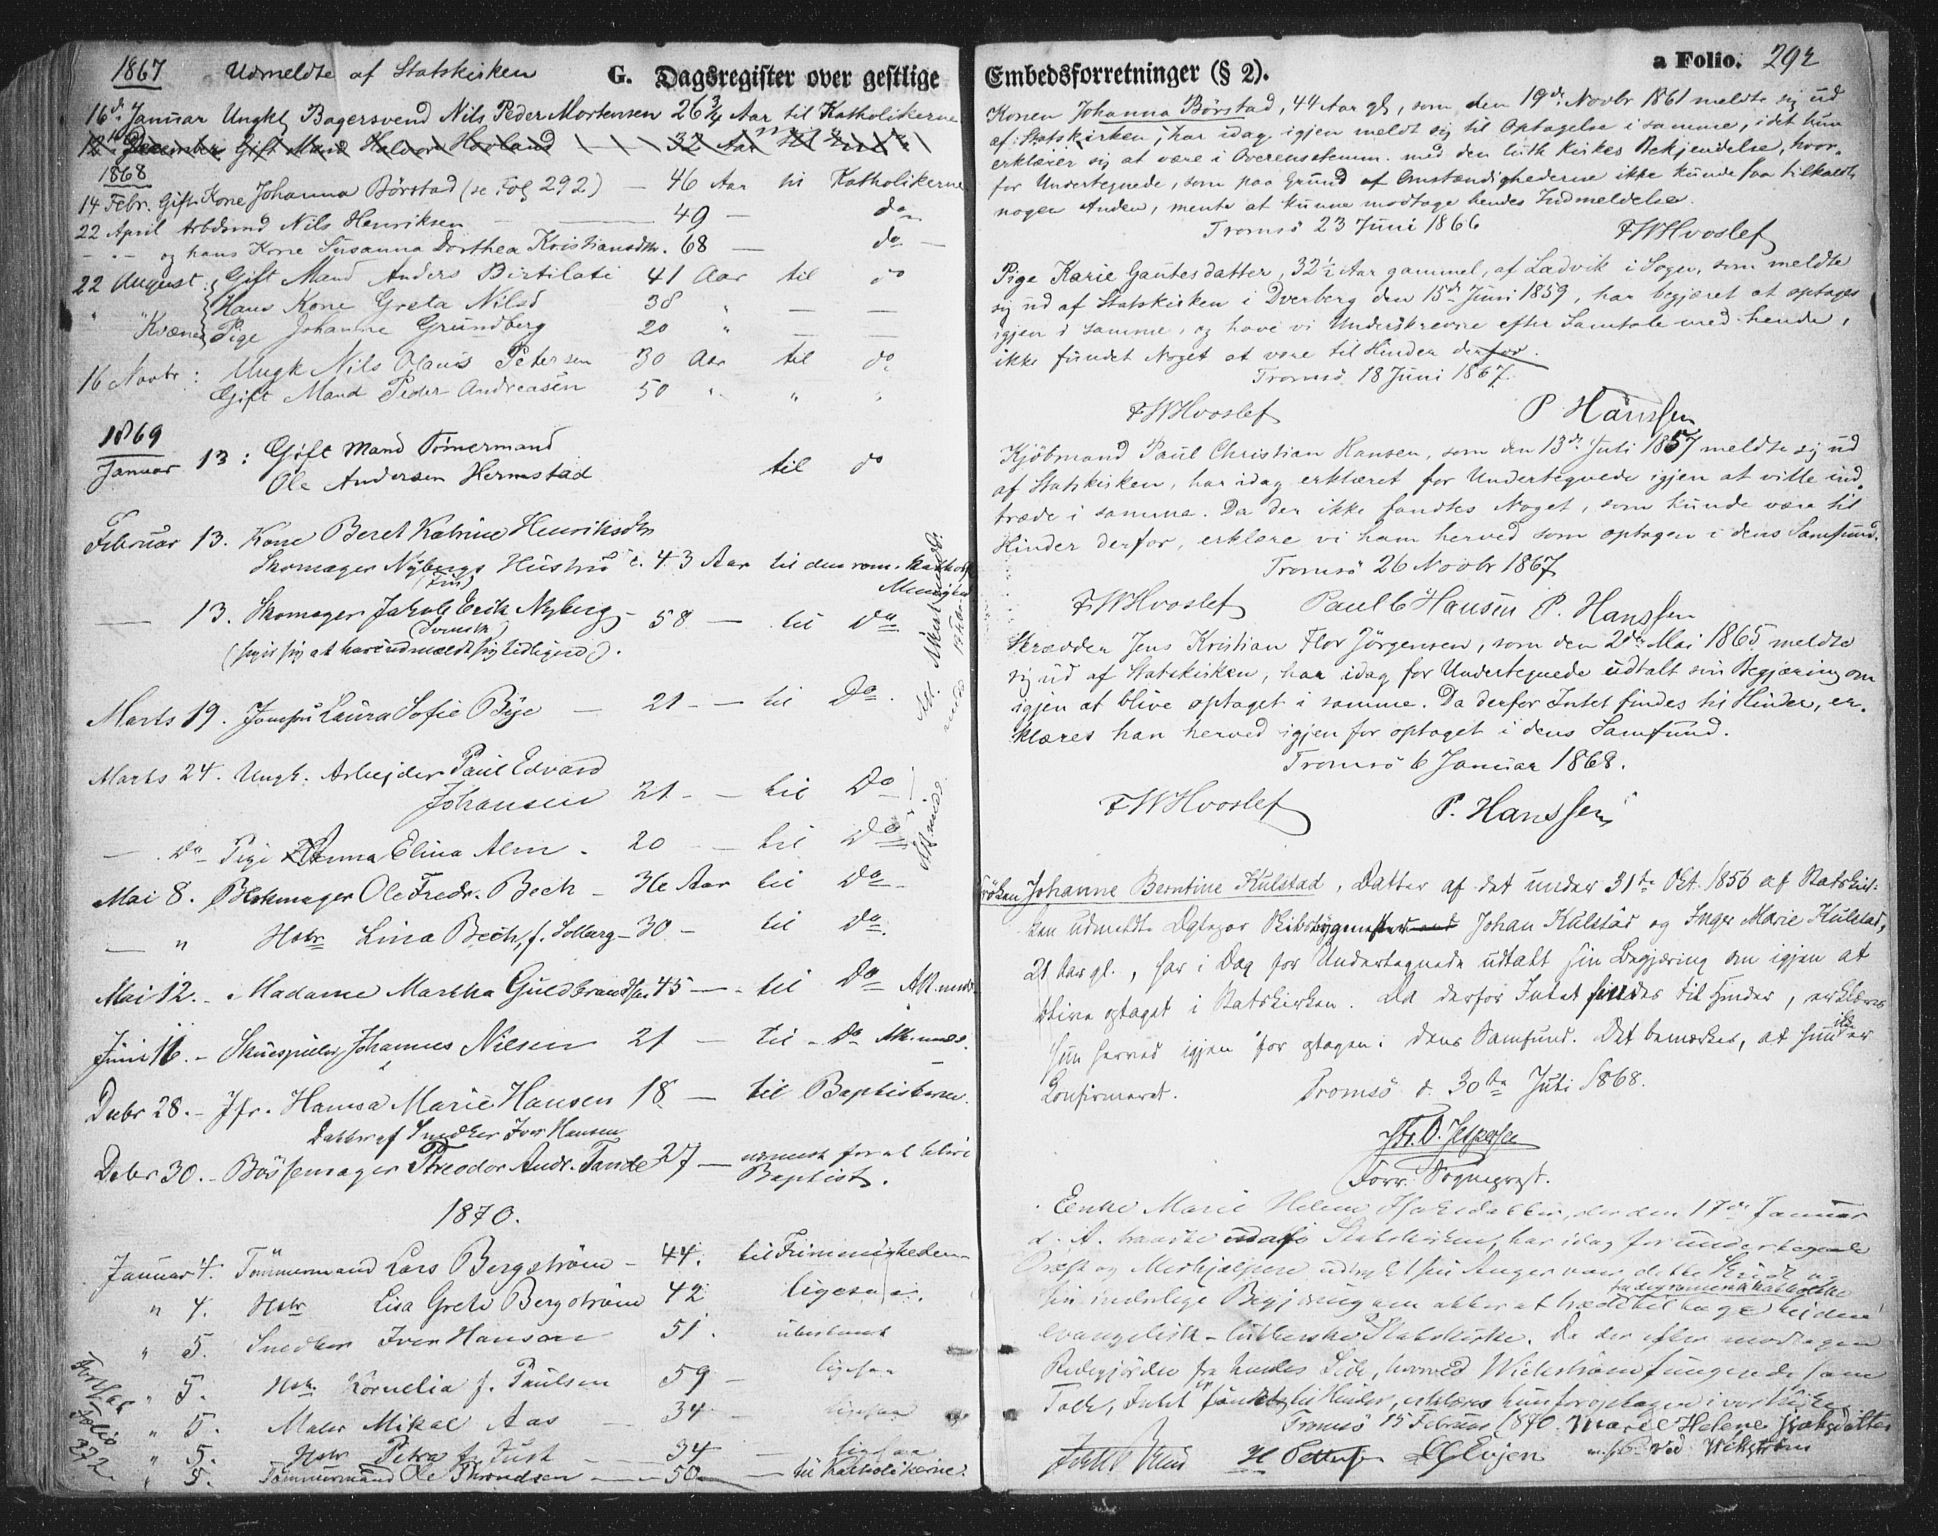 1867 Udmeldte af Statskirken G. Dagsregister over gestlige
16de Januar Ungkl Bagersvend Nils Peder Mortensen 26 3/4 Aar til Katholikerne
December Gift Mand Halvor Hovland 32 Aar til
1868
14 Febr. Gift Kone Johanna Börstad (se Fol 292) — 46 Aar til Katholikerne
22 April Arbdsmd Nils Henriksen — 49 — do
— " — og hans Kone Susanna Dorthea Kristiansdtr. 68 — do —
22 August: Gift Mand Anders Birtilati 41 Aar til do
" " Hans Kone Greta Nilsd 38 " — —
Kvæner Pige Johanne Grundberg 20 " — —
16 Novbr: Ungk Nils Olaus Petersen 30 Aar til do
Gift Mand Peder Andreasen 50 " " "
1869
Januar 13: Gift Mand Tömermand
Ole Andersen Hermstad til do
Februar 13. Kone Beret Katrine Henriksdtr
Skomager Nybergs Hustru c. 43 Aar til den rom. kathol.
Menighed
— 13. Skomager Jakob Erik Nyberg — 58 — til Do
(Svensk)
(siger sig at have udmældt sig tidligere).
Marts 19. Jomfru Laura Sofie Bye — 21 — — til Do.
Marts 24. Ungk. Arbejder Paul Edvard
Johansen 21 — — til Do
— . Do Pige Anna Elina Alm . 20 — til Do
Mai 8. Blokmager Ole Fredr. Bech — 36 Aar til Do
— " Hstr Lina Bech, f. Solberg — 30 — til Do.
Mai 12. — Madame Martha Guldbrandsen 45 — — til Do
Juni 16. — Skuespiller Johannes Nilsen 21 — til — Do
Decbr 28. — Jfr. Hansa Marie Hansen 18 — til Baptisterne.
Datter af Snedker Iver Hansen
Decbr 30. — Bössemager Theodor Andr. Tande 27 — nærmest for at blive
Baptist.
1870.
Januar 4. Tömmermand Lars Bergström — 44. til Frimenigheden
" 4. Hstr Lisa Greta Bergström 42 ligesaa.
" 5. Snedker Iver Hansen 51. ubestemt
" 5. Hstr. Kornelia f. Paulsen 59 — ligesaa
" 5. Maler Mikal Aas — 34 — ligesaa
" 5. Hstr Petra f. Just — 34 — ligesaa
" 5. Tömmermand Ole Throndsen — 50 — til Katholikerne.
Fortsat Folio 372.
Embedsforretninger (§ 2). a Folio. 292
Konen Johanna Börstad, 44 Aar gl, som den 19de Novbr 1861 meldte sig ud
af Statskirken, har idag igjen meldt sig til Optagelse i samme, idet hun
erklærer sig at være i Overensstemm. med den luth Kirkes Bekjendelse, hvor-
for Undertegnede, som paa Grund af Omstændighederne ikke kunde faa tilkaldt
nogen Anden, mente at kunne modtage hendes Indmeldelse.
Tromsö 23 Juni 1866 FWHvoslef
Pige Karie Gautesdatter, 32½ Aar gammel, af Ladvik i Sogn, som meldte
sig ud af Statskirken i Dverberg den 15de Juni 1859, har begjæret at optages
igjen i samme, og have vi Underskrevne efter Samtale med hende,
ikke fundet Noget at være til Hinder derfor.
Tromsö, 18 Juni 1867.
FWHvoslef P Hanssen
Kjöbmand Paul Christian Hansen, som den 13de Juli 1857 meldte sig ud
af Statskirken, har idag erklæret for Undertegnede igjen at ville ind-
træde i samme. Da der ikke fandtes Noget, som kunde være til
Hinder derfor, erklære vi ham herved som optagen i dens Samfund.
Tromsö 26 Novbr 1867
FWHvoslef Paul C Hansen P. Hanssen
Skrædder Jens Kristian Flor Jörgensen, som den 2den Mai 1865 meldte
sig ud af Statskirken, har idag for Undertegnede udtalt sin Begjæring om
igjen at blive optaget i samme. Da derfor Intet findes til Hinder, er-
klæres han herved igjen for optaget i dens Samfund.
Tromsö 6 Januar 1868.
FWHvoslef P. Hanssen
Fröken Johanne Berntine Kulstad, Datter af det under 31te Okt. 1856 af Statskir-
ken udmeldte Ægtepar Skibsbygmester Johan Kulstad og Inger Marie Kulstad,
21 Aar gl., har i Dag for Undertegnede udtalt sin Begjæring om igjen at
blive optaget i Statskirken. Da derfor Intet findes til Hinder, erklæres
hun herved igjen for optagen i dens Samfund. Det bemærkes, at hun ikke er
Confirmeret. Tromsö d. 30te Juli 1868.
Jespersen
Forr. Sogneprest.
Enke Marie Helene Isaksdatter, der den 17de Januar
d. A. traadte ud af Statskirken, har idag for undertegnede
Præst og Medhjælpere udtrykt sin Anger over dette Skridt og
sin inderlige Begjæring om atter at træde tilbage
fra den romersk katholske
evangelisk-lutherske Statskirke. Da der efter modtagen
Redegjörelse fra hendes Side, hvorved Wickström fungerede som
Tolk, Intet fandtes til Hinder, erklæres hun for optagen i vor Kirke
Tromsö 15 Februar 1870. Marie Helene Isaksdatter
H Pettersen Evjen m.f.P. ved Wikström